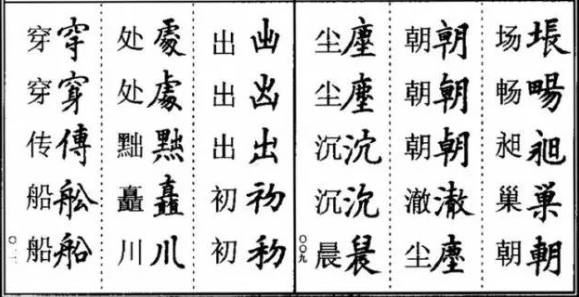 场場 畅暢 昶昶 巢巢 朝朝
朝朝 朝朝 朝朝 澈澈 尘塵
尘塵 尘塵 沉沉 沉沉 晨晨
〇〇九
出出 出出 出出 初初 初初
处處 处處 黜黜 矗矗 川川
穿穿 穿穿 传傳 船船 船船